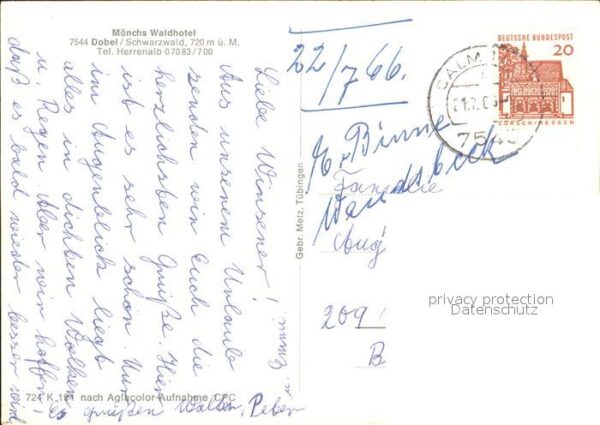 Mönchs Waldhotel
7544 Dobel / Schwarzwald, 720 m ü. M.
Tel. Herrenalb 07083/700
Liebe Winsener!
Aus unserem Urlaub
senden wir Euch die
herzlichsten Grüße. Hier
ist es sehr schön. Nur
im Augenblick liegt
alles in dichten Wolken
u. Regen. Aber wir hoffen,
daß es bald wieder besser wird
Es grüßen Walter, Peter
u.
724 K 151 nach Agfacolor-Aufnahme CPC
Gebr. Metz, Tübingen
22/7 66.
DEUTSCHE BUNDESPOST
20
LORSCH/HESSEN
CALM
754
E. v Binne
Wandsbeck
Familie
Aug
209
B
privacy protection
Datenschutz